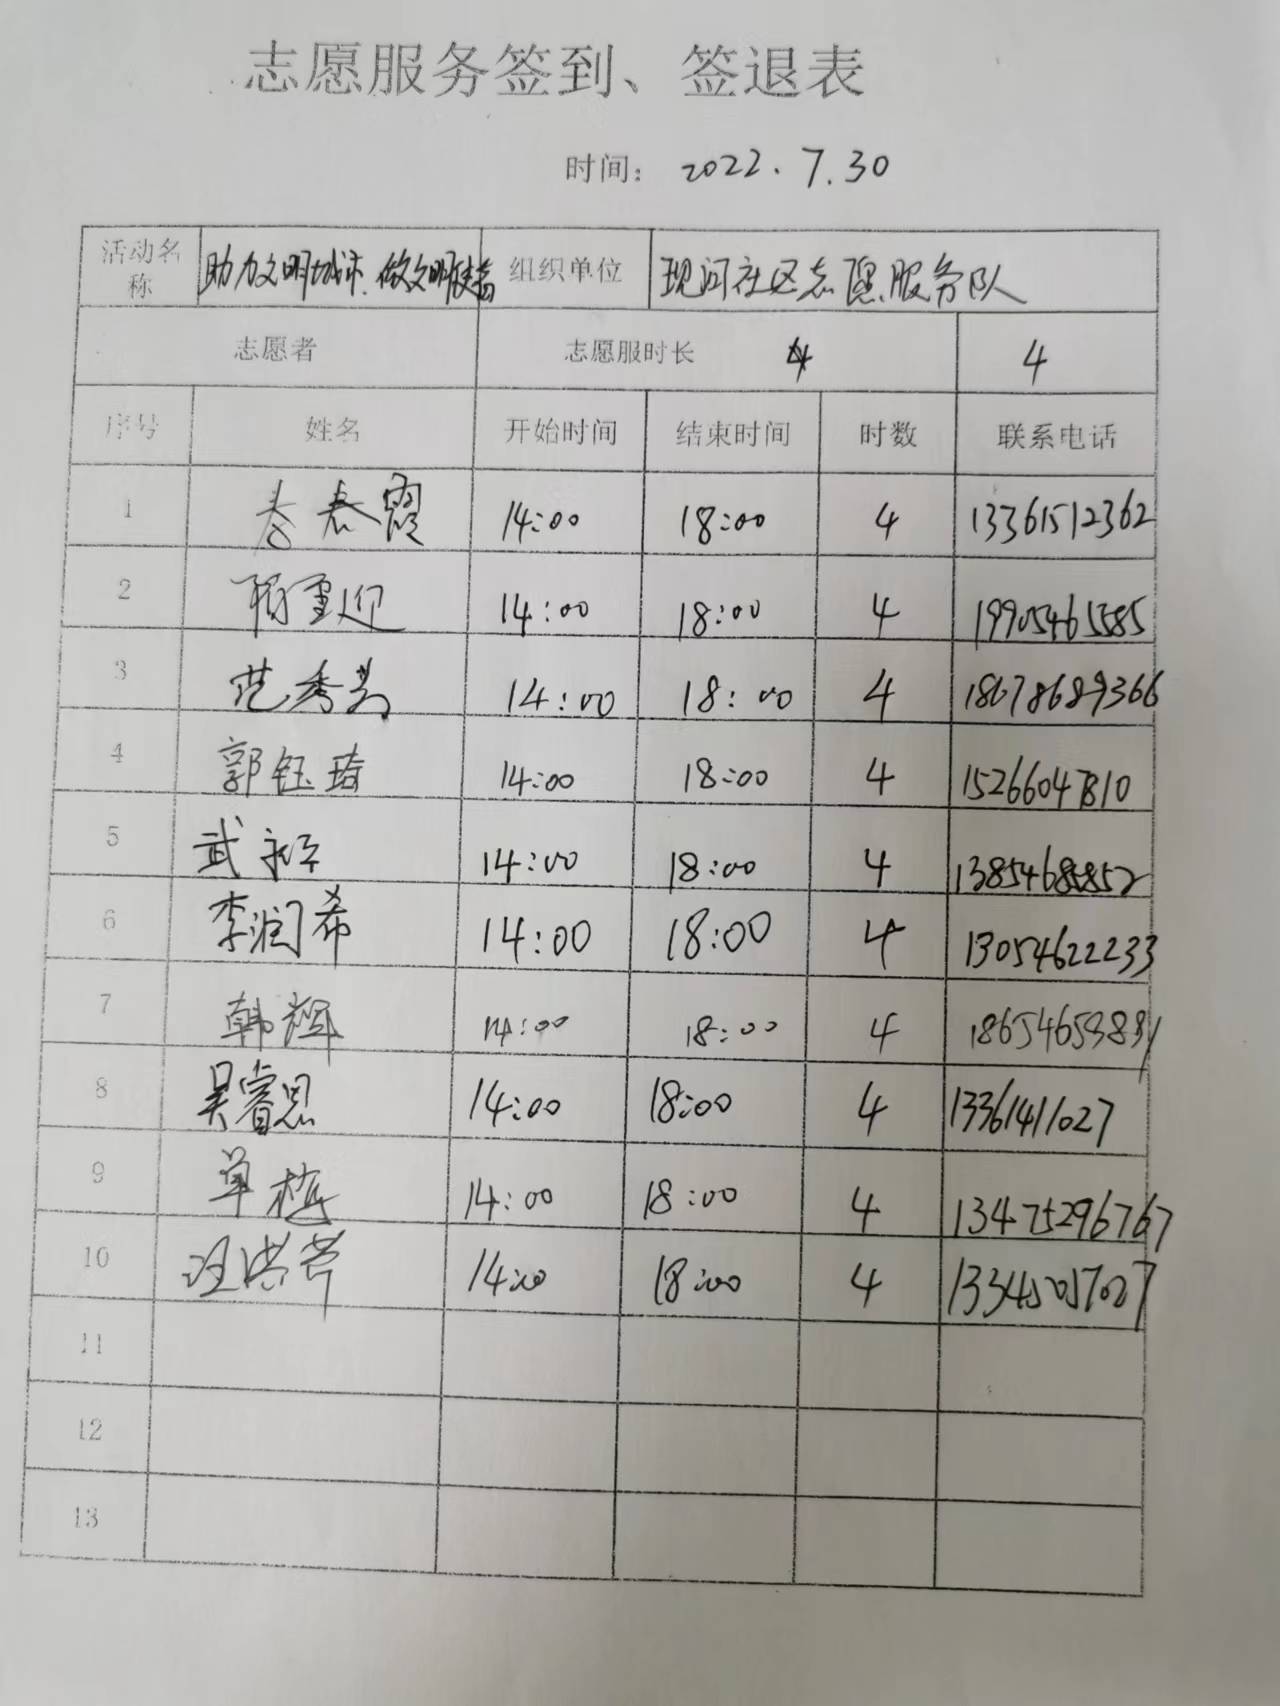 志愿服务签到、签退表
时间: 2022.7.30
活动名称 助力文明城市、做文明使者 组织单位 现河社区志愿服务队
志愿者 志愿服时长 4 4
序号 姓名 开始时间 结束时间 时数 联系电话
1 李春霞 14:00 18:00 4 13361512362
2 14:00 18:00 4 19905465585
3 范秀芸 14:00 18:00 4 18678689366
4 郭钰琦 14:00 18:00 4
5 武 14:00 18:00 4 13854685852
6 李润希 14:00 18:00 4 13054622233
7 韩辉 14:00 18:00 4
8 吴睿思 14:00 18:00 4 13361411027
9 单梅 14:00 18:00 4 13475296767
10 汪洪芹 14:00 18:00 4 13345057027
11
12
13